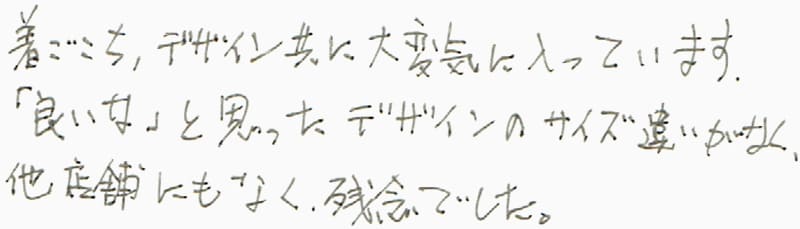 着ごこち,デザイン共に大変気に入っています.
「良いな」と思ったデザインのサイズ違いがなく、
他店舗にもなく、残念でした。